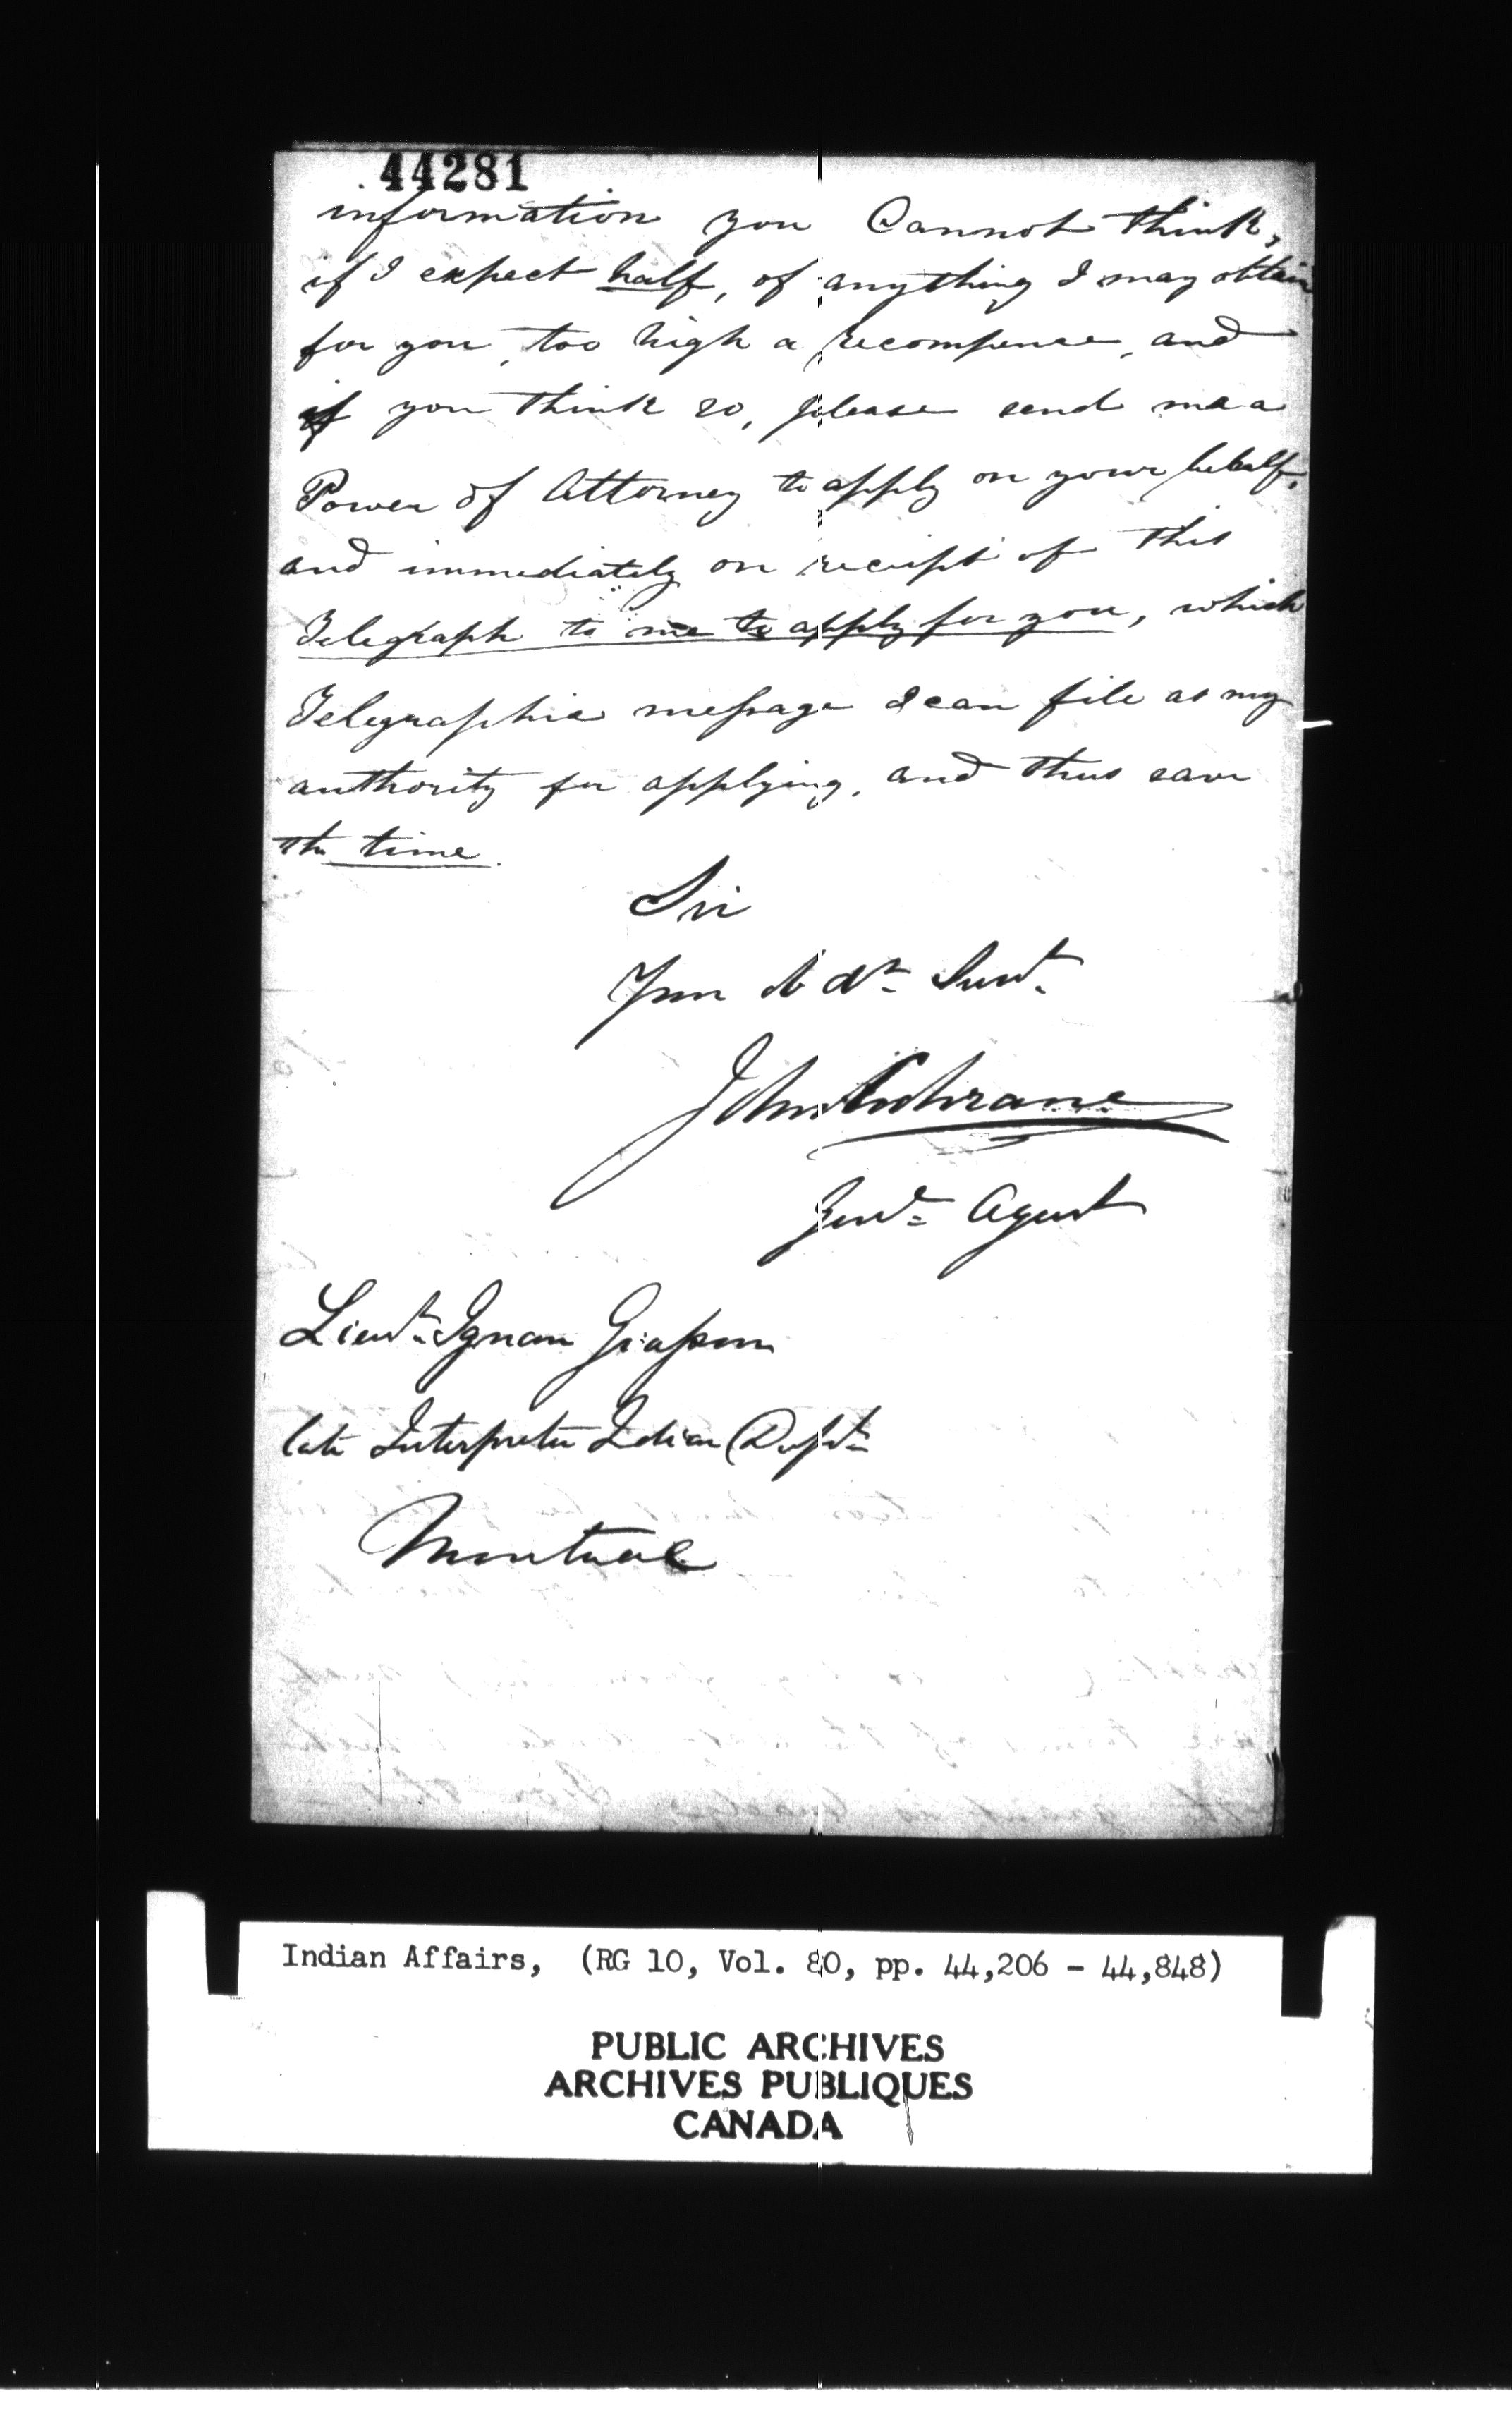 44281
information you Cannot think,
if I expect half, of anything I may obtain
for you, too high a recompense, and
if you think so, please send me a
Power of Attorney to apply on your behalf,
and immediately on receipt of this
Telegraph to me to apply for you, which
Telegraphic message I can file as my
authority for applying, and thus save
the time.
Sir
Your ob dt Servt
John Cochrane
Genl Agent
Lieut Ignace Giasson
late Interpreter Indian Dept
Montreal
Indian Affairs, (RG 10, Vol. 80, pp. 44,206 - 44,848)
PUBLIC ARCHIVES
ARCHIVES PUBLIQUES
CANADA